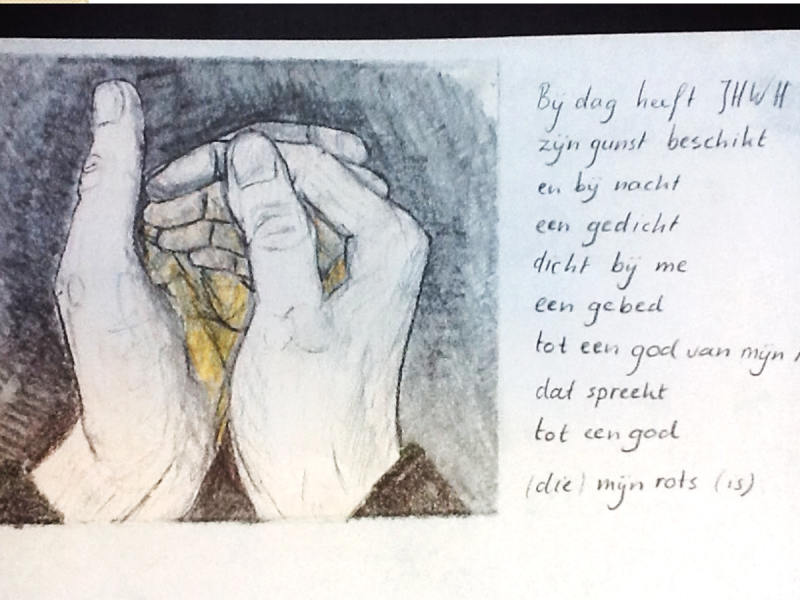 Bij dag heeft JHWH
zijn gunst beschikt
en bij nacht
een gedicht
dicht bij me
een gebed
tot een god van mijn
dat spreekt
tot een god
(die) mijn rots (is)